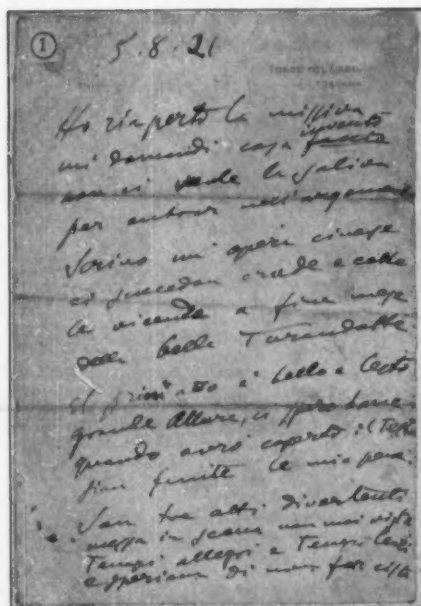 1
5.8.21
TORRE DEL LAGO
TOSCANA
Ho riaperto la missiva
mi domandi cosa faccio invento
non ci vuole la saliva
per entrar nell'argomento
Scrivo un' opera cinese
ci succedon crude e cotte
la vicenda a fine mese
della bella Turandotte
Il prim'atto è bello e lesto
grande ci spero bene
quando avrò coperto il testo
sian finite le mie pene.
San tre atti divertenti
messa in scena non mai vista
Tempi allegri e Tempi lenti
e speriam di non far